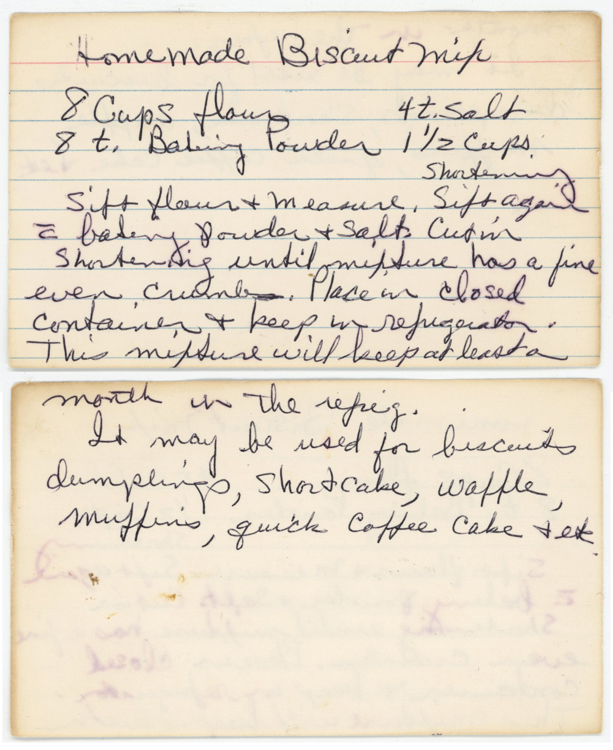 Homemade Biscuit Mix
8 Cups flour 4 t. Salt
8 t. Baking Powder 1 1/2 Cups
Shortening
Sift flour + measure. Sift again
c̄ baking powder + salt. Cut in
Shortening until mixture has a fine
even crumb. Place in closed
container + keep in refrigerator.
This mixture will keep at least a
month in the refrig.
It may be used for biscuits
dumplings, shortcake, waffle,
muffins, quick coffee cake + etc.